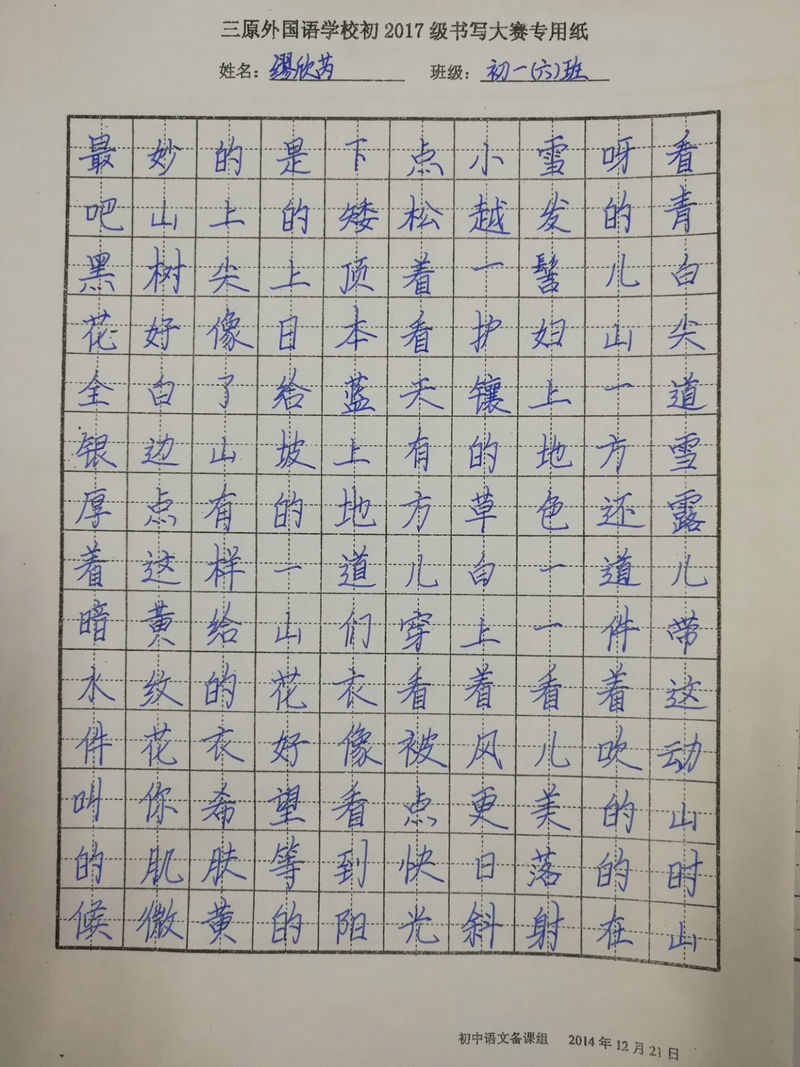 三原外国语学校初2017级书写大赛专用纸
姓名：缪欣芮 班级：初一(六)班
最妙的是下点小雪呀看
吧山上的矮松越发的青
黑树尖上顶着一髻儿白
花好像日本看护妇山尖
全白了给蓝天镶上一道
银边山坡上有的地方雪
厚点有的地方草色还露
着这样一道儿白一道儿
暗黄给山们穿上一件带
水纹的花衣看着看着这
件花衣好像被风儿吹动
叫你希望看点更美的山
的肌肤等到快日落的时
候微黄的阳光斜射在山
初中语文备课组 2014年12月21日